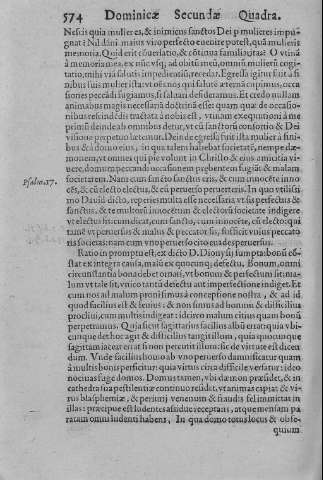 574 Dominicæ Secundæ Quadra.
Nescis quia mulieres, & inimicus sanctos Dei p mulieres impu-
gnat? Nil dãni maius viro perfecto euenire potest, quã mulieris
memoria. Quid erit cõuersatio, & cõtinua familiaritas? O vtinã
à memoria mea, ex nũc vsq; ad obitũ meũ, omniũ mulierũ cogi-
tatio, mihi via salutis impedientiũ, recedat. Egressa igitur sunt à fi-
nibus suis mulier ista: vt oẽs nos, qui salute æterna capimus, occa-
siones peccãdi fugiamus, si saluari desideramus. Et credo nullam
animabus magis necessariã doctrinã esse: quam quæ de occasio-
nibus rescindẽdis tractata à nobis est, vtinam exequutioni à me
primũ deinde ab omnibus detur, vt cũ sanctorũ consortio & Dei
visione perpetuo lætemur. Deinde egressa fuit ista mulier à fini-
bus & à domo eius, in qua talem habebat societatẽ, nempe dæ-
monem, vt omnes qui pie volunt in Christo & eius amicitia vi-
uere, domum peccandi occasionem præbentem fugiãt & malam
societatem. Nam cum sancto sanctus eris, & cum innocẽte inno-
Psalm. 17. cẽs, & cũ electo electus, & cũ peruerso peruerteris. In quo vtilissi
mo Dauid dicto, reperies multa esse necessaria vt sis perfectus &
sanctus, & te multorũ innocẽtum & electorũ societate indigere
vt electus his: cum sancto, cum innocẽte, cũ electo: qui
tamẽ vt peruersus & malus & peccator sis, sufficit vnius peccato
ris societas: nam cum vno peruerso cito euades peruersus.
Ratio in promptu est, ex dicto D. Dionysij sumpta bonũ cõ-
stat ex integra causa, malũ ex quocunq; defectu. Bonum, omni
circunstantia bona debet ornari, vt bonum & perfectum sit: ma-
lum vt tale sit, vnico tantũ defectu aut imperfectione indiget. Et
cum nos ad malum proni simus à conceptione nostra, & ad id
quod facilius est & leuius: & non simus ad bonum & difficilius
procliui, cum multis indigeat: idcirco malum citius quam bonũ
perpetramus. Quia sicut sagittarius facilius albũ errat quia vbi-
cunque det hoc agit & difficilius tangit illum, quia quocunque
sagittam iaceret errat si non percutit illum: sic de virtute est dicen
dum. Vnde facilius homo ab vno peruerso damnificatur quam
à multis bonis perficitur: quia virtus circa difficile versatur: ideo
nocius fuge domos. Domus tamen, vbi dæmon præsidet, & in
cathedra sua pestilentiæ continuo residet, vt animas capiat & vi-
rus blasphemiæ, & periurij venenum & fraudis fel immittat in
illas: præcipue est ludentes assidue receptaris, atque mensam pa
ratam omni ludenti habens, In qua domo totus locus & obse-
quium